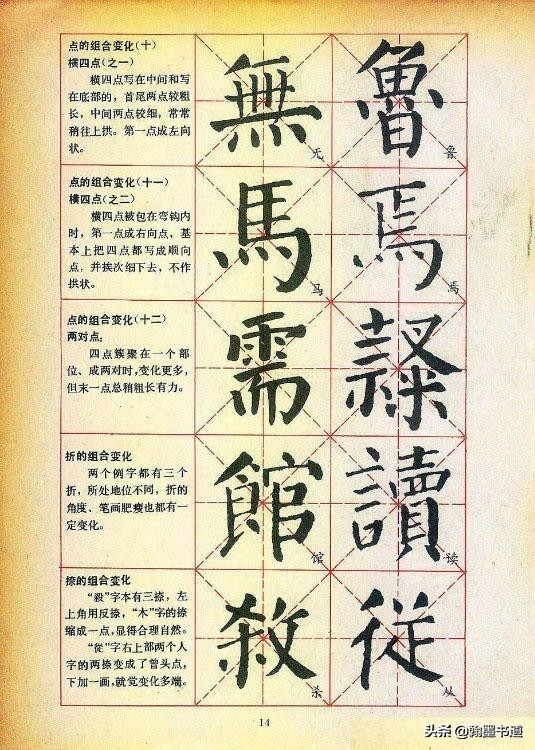 点的组合变化(十)
横四点(之一)
横四点写在中间和写
在底部的，首尾两点较粗
长，中间两点较细，常常
稍往上拱。第一点成左向
状。
無
无
魯
鲁
点的组合变化(十一)
横四点(之二)
横四点被包在弯钩内
时，第一点成右向点，基
本上把四点都写成顺向
点，并挨次细下去，不作
拱状。
馬
马
焉
焉
点的组合变化(十二)
两对点：
四点簇聚在一个部
位、成两对时，变化更多，
但末一点总稍粗长有力。
需
折的组合变化
两个例字都有三个
折，所处地位不同，折的
角度、笔画肥瘦也都有一
定变化。
館
馆
讀
读
捺的组合变化
“殺”字本有三捺，左
上角用反捺，“木”字的捺
缩成一点，显得合理自然。
“從”字右上部两个人
字的两捺变成了曾头点，
下加一画，就觉变化多端。
殺
杀
從
从
14
头条 @翰墨书道